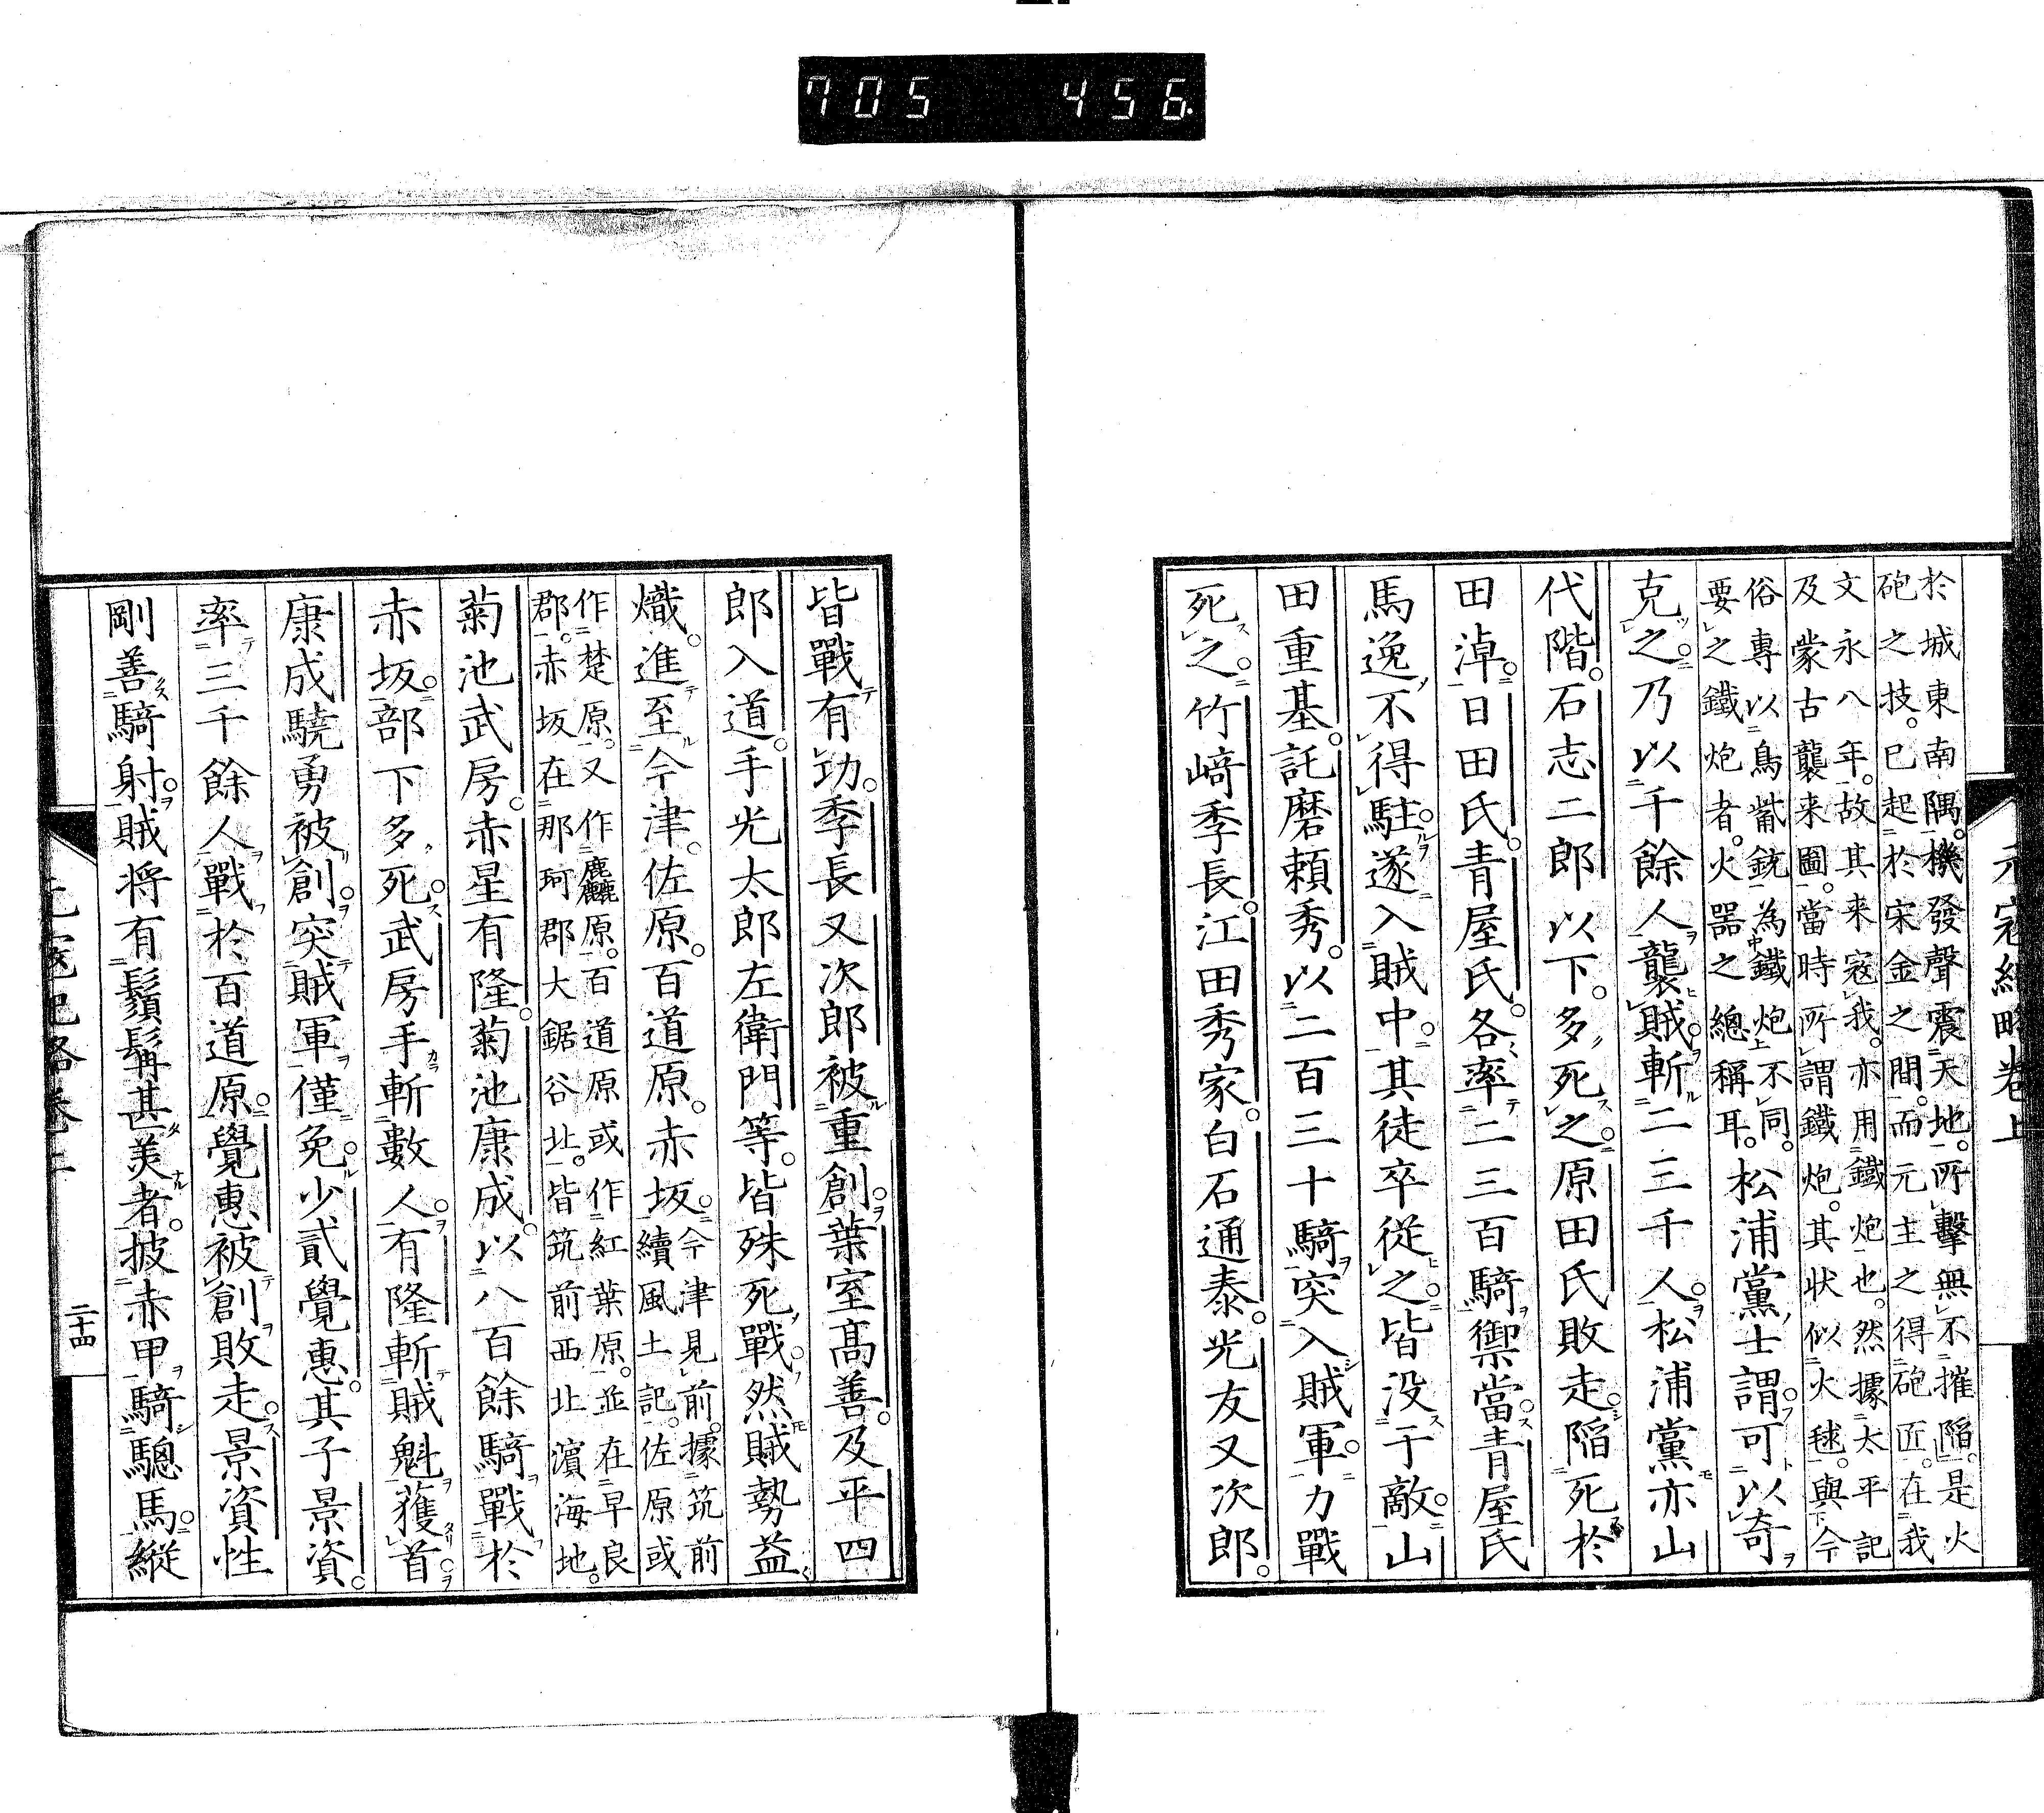 705 456
元寇紀略卷上
於城東南隅。機發聲震天地。所擊無不摧陷。是火
砲之技。已起於宋金之間。而元主之得砲匠。在我
文永八年。故其来寇我。亦用鐵炮也。然據太平記
及蒙古襲来圖。當時所謂鐵炮。其状似火毬。與今
俗專以鳥觜銃為鐵炮不同。
要之鐵炮者。火器之總稱耳。松浦黨士謂可以奇
克之。乃以千餘人襲賊。斬二三千人。松浦黨亦山
代階。石志二郎以下。多死之。原田氏敗走。陷死於
田淖。日田氏。青屋氏。各率二三百騎禦當。青屋氏
馬逸。不得駐。遂入賊中。其徒卒從之。皆没于敵。山
田重基。託磨頼秀。以二百三十騎突入賊軍。力戰
死之。竹﨑季長。江田秀家。白石通泰。光友又次郎。
皆戰有功。季長又次郎被重創。葉室髙善。及平四
郎入道。手光太郎左衛門等。皆殊死戰。然賊勢益
熾。進至今津。佐原。百道原。赤坂。今津見前。據筑前
續風土記。佐原或
作楚原。又作麤原。百道原或作紅葉原。並在早良
郡。赤坂在那珂郡大鋸谷北。皆筑前西北濵海地。
菊池武房。赤星有隆。菊池康成。以八百餘騎戰於
赤坂。部下多死。武房手斬數人。有隆斬賊魁。獲首
康成驍勇被創。突賊軍僅免。少貳覺惠。其子景資。
率三千餘人戰於百道原。覺惠被創敗走。景資性
剛善騎射。賊将有鬚髯甚美者。披赤甲。騎驄馬。縦
元寇紀略卷上
二十四